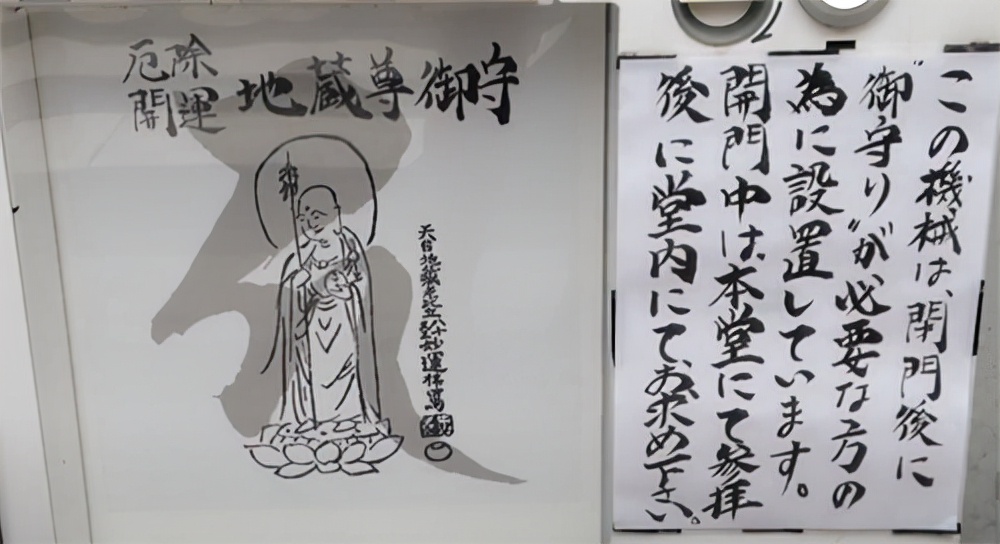 厄除
開運
地蔵尊御守
妙運拝寫
この機械は、閉門後に
"御守り"が必要な方の
為に設置しています。
開門中は本堂にて参拝
後に堂内にて、お求め下さい。